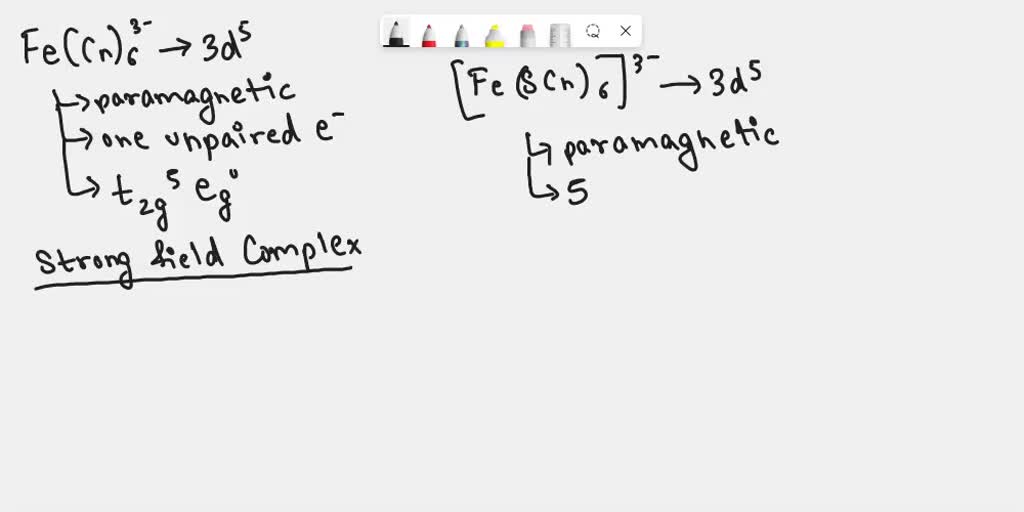 Fe(Cn)₆³⁻ → 3d⁵
↳ paramagnetic
→ one unpaired e⁻
↳ t₂g⁵ eg⁰
Strong field Complex
[Fe(SCn)₆]³⁻ → 3d⁵
↳ paramagnetic
↳ 5